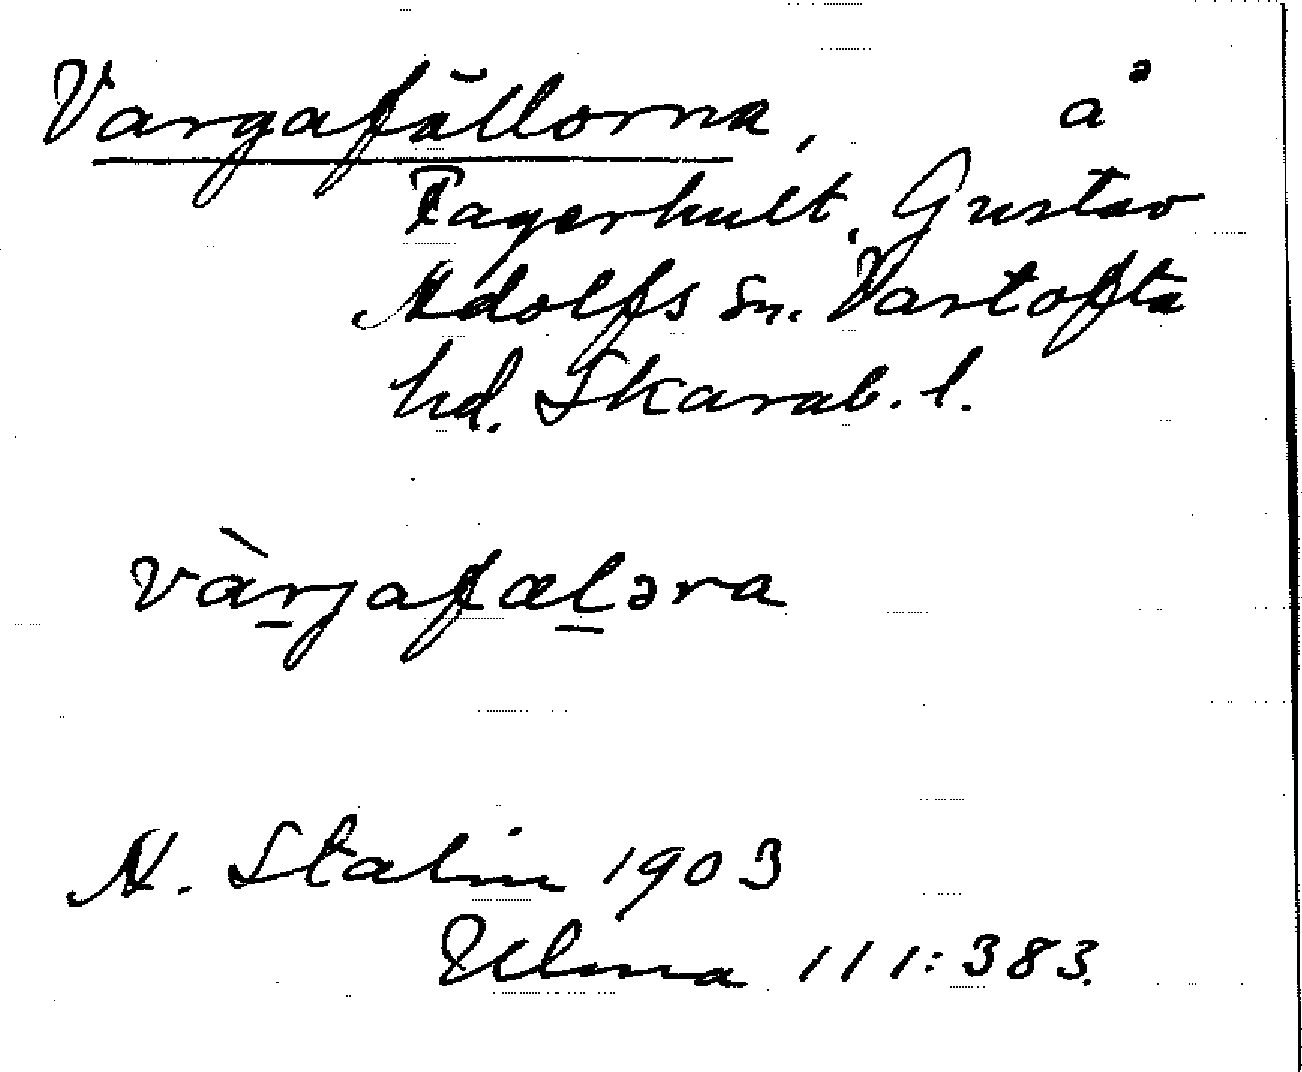 Vargafällorna, å
Fagerhult, Gustav
Adolfs sn. Vartofta
hd. Skarab. l.
vàrjafæləra
A. Stalin 1903
Ulma 111:383.